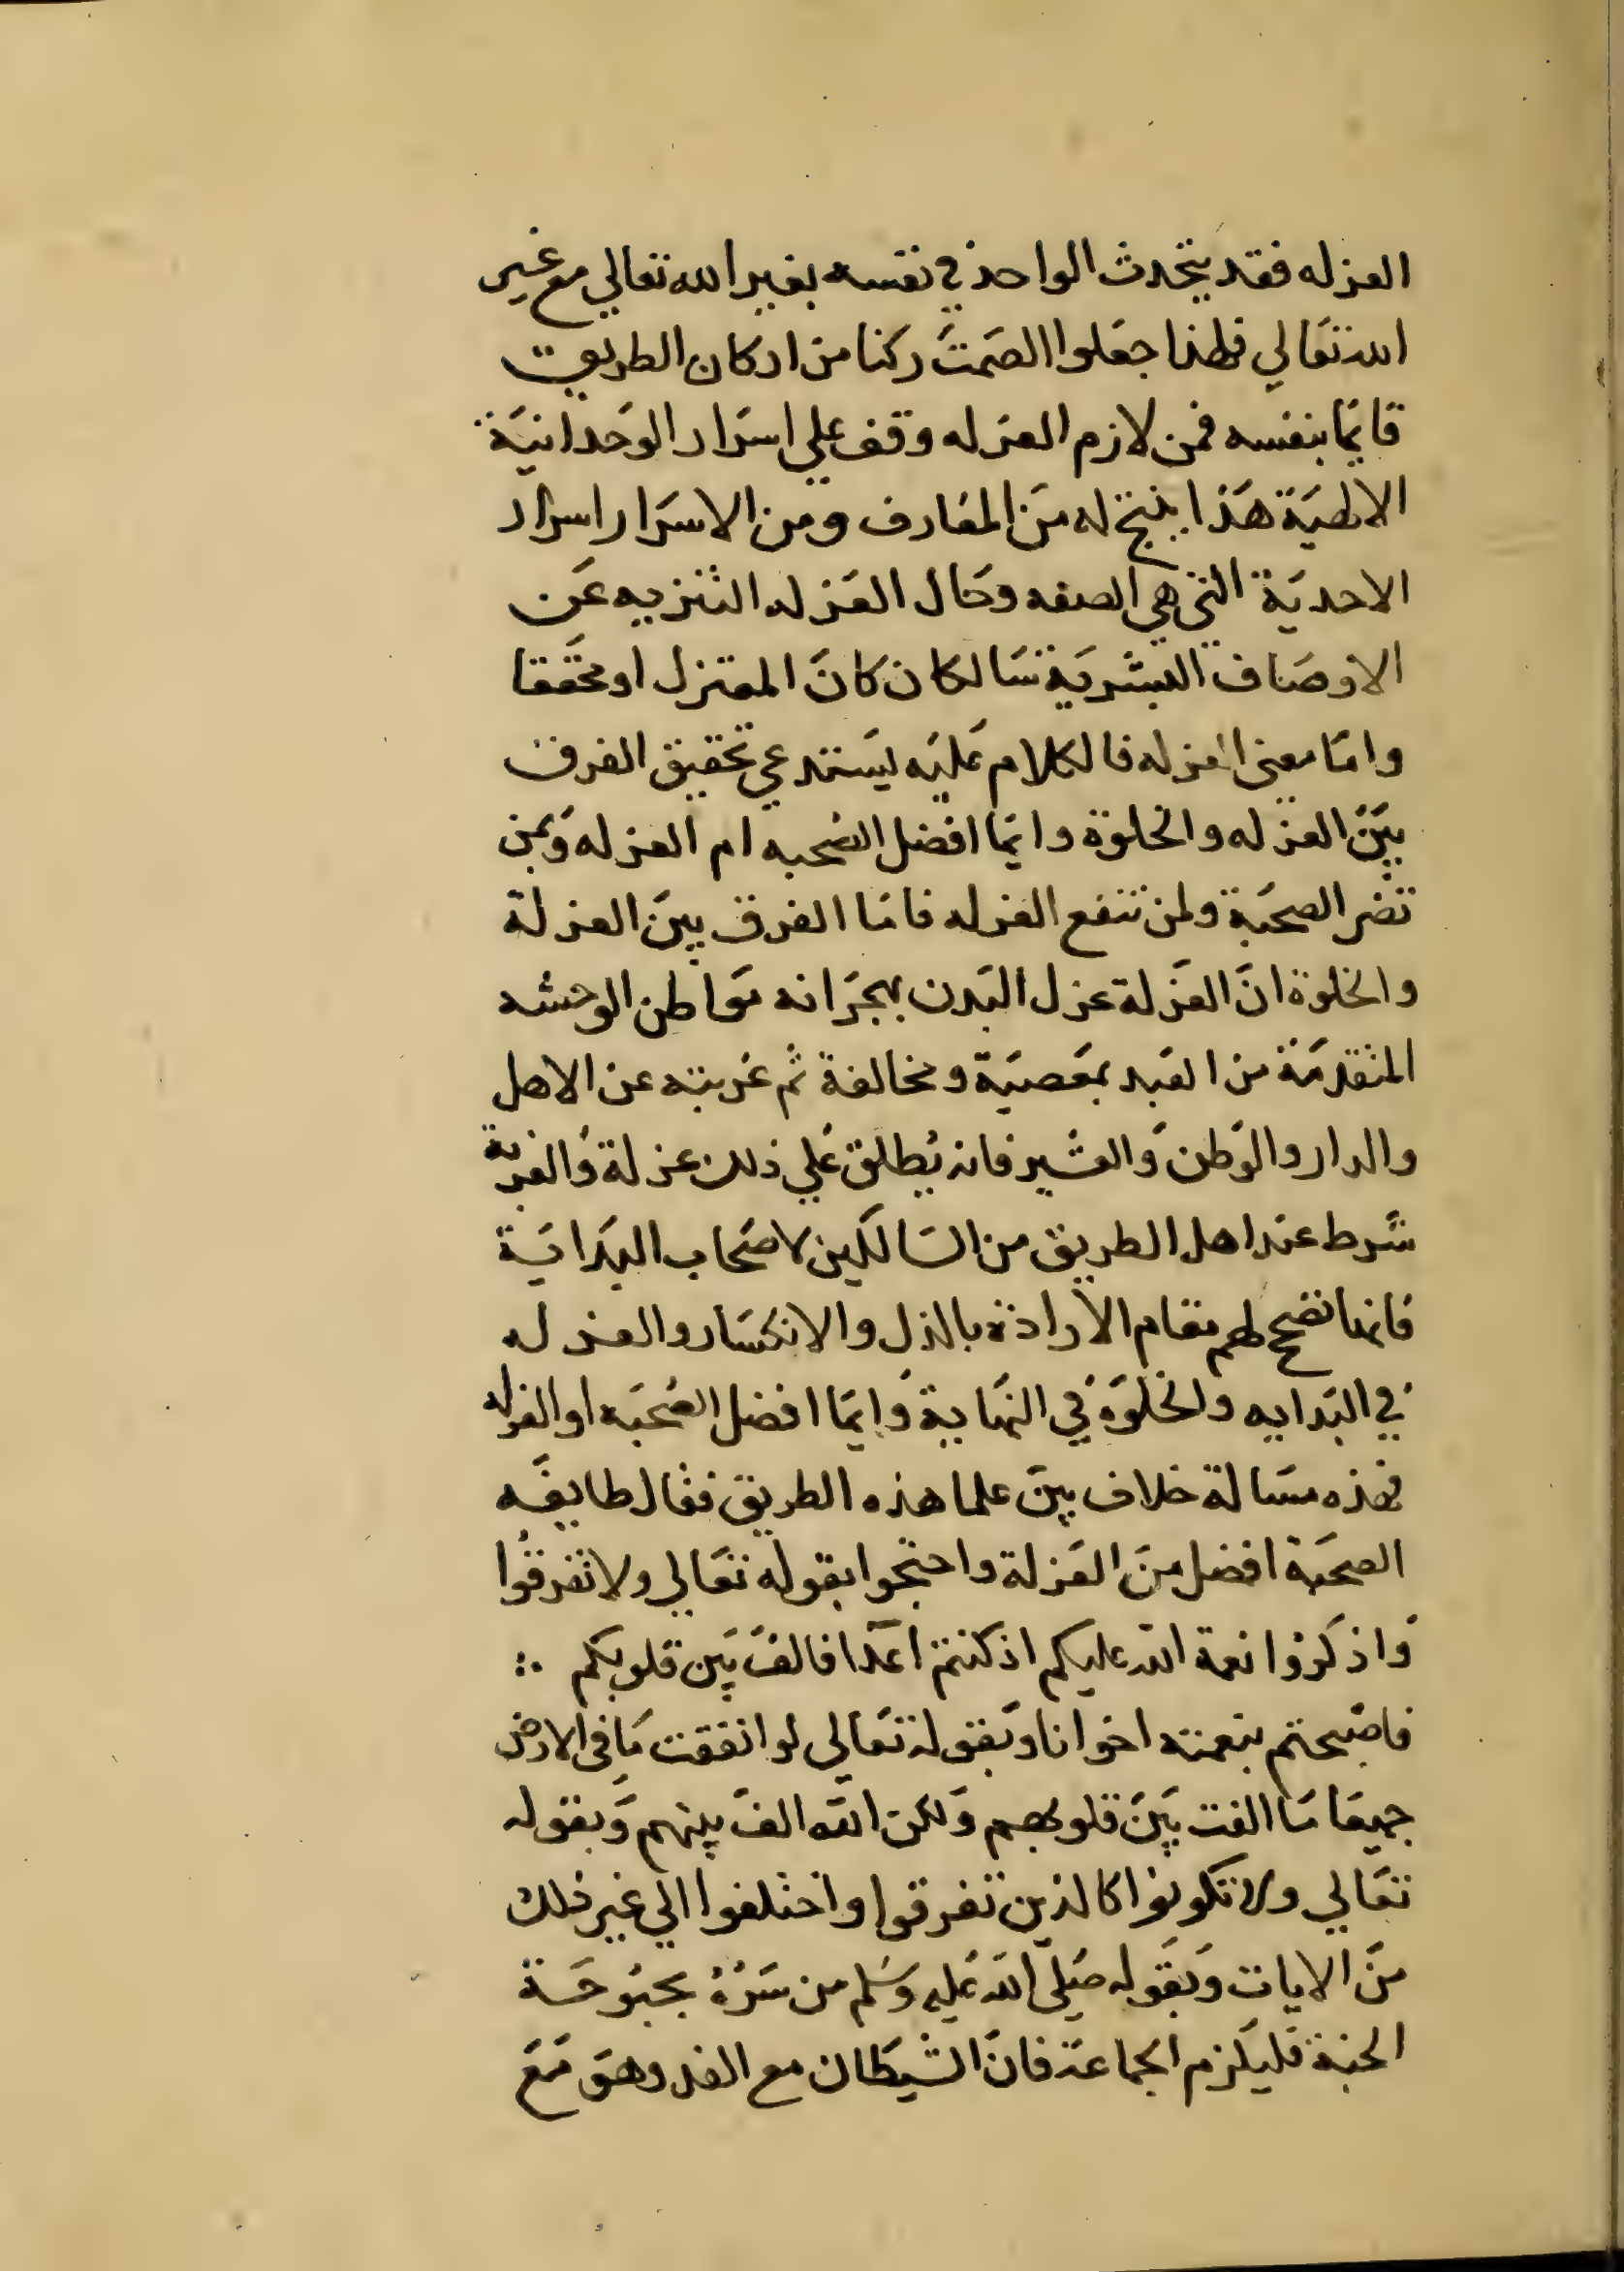 العزله فقد يتحدث الواحد في نفسه بغير الله تعالي مع غير
الله تعَالي فلهذا جعَلوا الصَمتَ ركنا من اركان الطريق
قايمًا بنفسه فمن لازم العزله وقف علي اسرَار الوَحدانيَة
الالهيَة هَذا ينتج له مِنَ المعَارف ومن الاسرَار اسرار
الاحديَة التي هي الصفه وحَال العَزله التنزيه عَن
الاوصَاف البشريَة سَالكا ن كانَ المعتزل او محَققا
وامَا معني العزله فالكلام عَليَه يَستدعي تحقيق الفرق
بيَنَ العزله والخلوة وايمَا افضل الصُحبه ام العزله وَبمن
تضر الصحبَة ولمن تنفع العزله فامَا الفرق بينَ العزلة
والخلوة انَ العَزلة عزل البَدن بهجرَانه مَواطن الوحشه
المتقدمَة من العَبد بمعَصيَة ومخالفة ثُم غربته عن الاهل
والدار والوَطن وَالعشير فانه يُطلق عَلي ذلك عزلة وَالغربة
شَرط عند اهل الطريق من السَالكين لاصَحاب البدَايَة
فانما تضح لهم مقام الارادة بالذل والانكسَار والعزله
في البَدايه والخلوَة في النهَاية وَايمَا افضل الصُحبَه او العزله
فهذه مسَالة خلاف بينَ علما هذه الطريق فقال طايفَه
الصحَبة افضل منَ العَزلة واحتجوا بقوله تعَالي ولا تفرقُوا
وَاذكرُوا نعمة الله عليكم اذ كنتم اعَدآ فالفَ بَين قلوبكم
فاصَبحتم بنعمته اخوانا وَبقوله تعَالي لو انفقت مَا في الارض
جميعَا مَا الفت بَينَ قلوبهم وَلكن الله الفَ بينهم وَبقوله
تعَالي ولا تكونوا كالذين تفرقوا واختلفوا الي غير ذلك
منَ الايات وَبقَوله صَلَي الله عَليه وسَلم من سَرُهُ بحبُوحَة
الجنة فليَلزم الجماعَة فانَ الشيطَان مع الفد وهوَ مَعَ